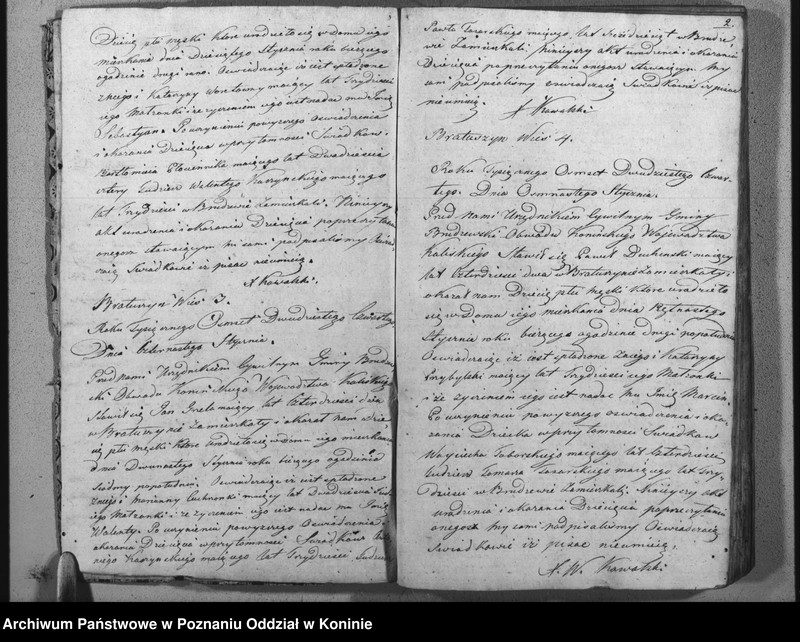 Dziecię płci męski które urodziło się w Domu iego
mieszkania dnia Dziesiątego Stycznia roku bieżącego
ogodzinie drugi rano. Oswiadczaiąc iż iest spłodzone
znego i Katarzyny maiący lat Trzydzieści
iego Małżonki i że życzeniem iego iest nadać mu Imię
Sebastyan. Po uczynieniu powyższego Oswiadczenia
i okazania Dziecięcia w przytomności Swiadków
Bartłomieia maiącego lat Dwadzieścia
cztery tudzież Walentego Kaczyńskiego maiącego
lat Trzydzieści w Brudzewie Zamieszkali. Ninieyszy
akt urodzenia i okazania Dziecięcia po przeczytaniu
onegoż stawaiącym mi sami podpisaliśmy
Swiadkowie iż pisac nieumieią.
A Kowalski.
Bratuszyn Wieś 3.
Roku Tysiącznego Osmset Dwudziestego Czwartego
Dnia Czternastego Stycznia.
Przed Nami Urzędnikiem Cywilnym Gminy
Obwodu Województwa
Stawił się Jan maiący lat Czterdzieści dwa
w Bratuszynie Zamieszkały i okazał nam
płci męski które urodziło się w domu iego mieszkania
dnia Dwunastego Stycznia roku bieżącego ogodzinie
siódmy popołudniu. Oswiadczaiąc iż iest spłodzone
znego i Maryanny maiący lat Dwadzieścia
iego Małżonki i że życzeniem iego iest nadać mu Imię
Walenty. Po uczynieniu powyższego Oswiadczenia i
okazania Dziecięcia w przytomności Swiadków
Kaczyńskiego maiącego lat Trzydzieści tudzież
2.
Pawła maiącego lat Sześćdziesiąt w
Zamieszkali. Ninieyszy akt urodzenia i okazania
Dziecięcia po przeczytaniu onegoż Stawaiącym My
sami podpisaliśmy Swiadkowie iż pisac
nieumieią.
A Kowalski
Bratuszyn Wieś 4.
Roku Tysiącznego Osmset Dwudziestego Czwar-
tego. Dnia Osmnastego Stycznia.
Przed Nami Urzędnikiem Cywilnym Gminy
Brudzewski Obwodu Konińskiego Województwa
Kaliskiego Stawił się Paweł maiący
lat Czterdzieści dwa w Bratuszynie Zamieszkały i
okazał nam Dziecię płci męski które urodziło
się w Domu iego mieszkania dnia Piętnastego
Stycznia roku bieżącego ogodzinie drugi popołudniu
Oswiadczaiąc iż iest spłodzone znego i Katarzyny
maiący lat Trzydzieści iego Małżonki
i że życzeniem iego iest nadać mu Imię Marcin.
Po uczynieniu powyższego oswiadczenia i oka-
zania Dziecka w przytomności Swiadków
Woyciecha maiącego lat Czterdzieści
tudzież Tomasza maiącego lat Trzy-
dzieści w Brudzewie Zamieszkali. Ninieyszy akt
urodzenia i okazania Dziecięcia po przeczytaniu
onegoż my sami podpisaliśmy Oswiadczaią
Swiadkowie iż pisac nieumieią.
A. W. Kowalski
Archiwum Państwowe w Poznaniu Oddział w Koninie